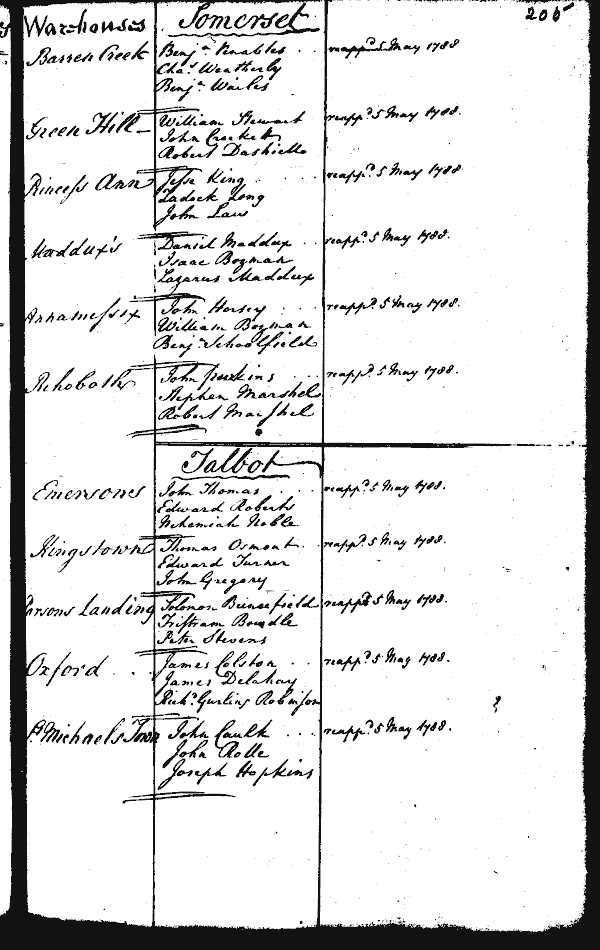 Warehouses Somerset 205
Barren Creek Benj.n Venables reapp.d 5 May 1788
Cha.s Weatherly
Benj.n Wailes
Green Hill William Stewart reapp.d 5 May 1788.
John Crockett
Robert Dashiell
Princess Ann Jesse King reapp.d 5 May 1788
Zadock Long
John Law
Maddux's Daniel Maddux reapp.d 5 May 1788.
Isaac Bozman
Lazarus Maddux
Annamessix John Horsey reapp.d 5 May 1788.
William Bozman
Benj.n Schoolfield
Rehoboth John reapp.d 5 May 1788.
Stephen Marshel
Robert Marshel
Talbot
Emersons John Thomas reapp.d 5 May 1788.
Edward Roberts
Nehemiah Noble
Kingstown Thomas Osmont reapp.d 5 May 1788.
Edward Turner
John Gregory
Parsons Landing Solomon reapp.d 5 May 1788.
Tristram Bowdle
Peter Stevens
Oxford James Colston reapp.d 5 May 1788.
James Delahay
Rich.d Gurling Robinson
St Michaels Town John Caulk reapp.d 5 May 1788.
John Rolle
Joseph Hopkins